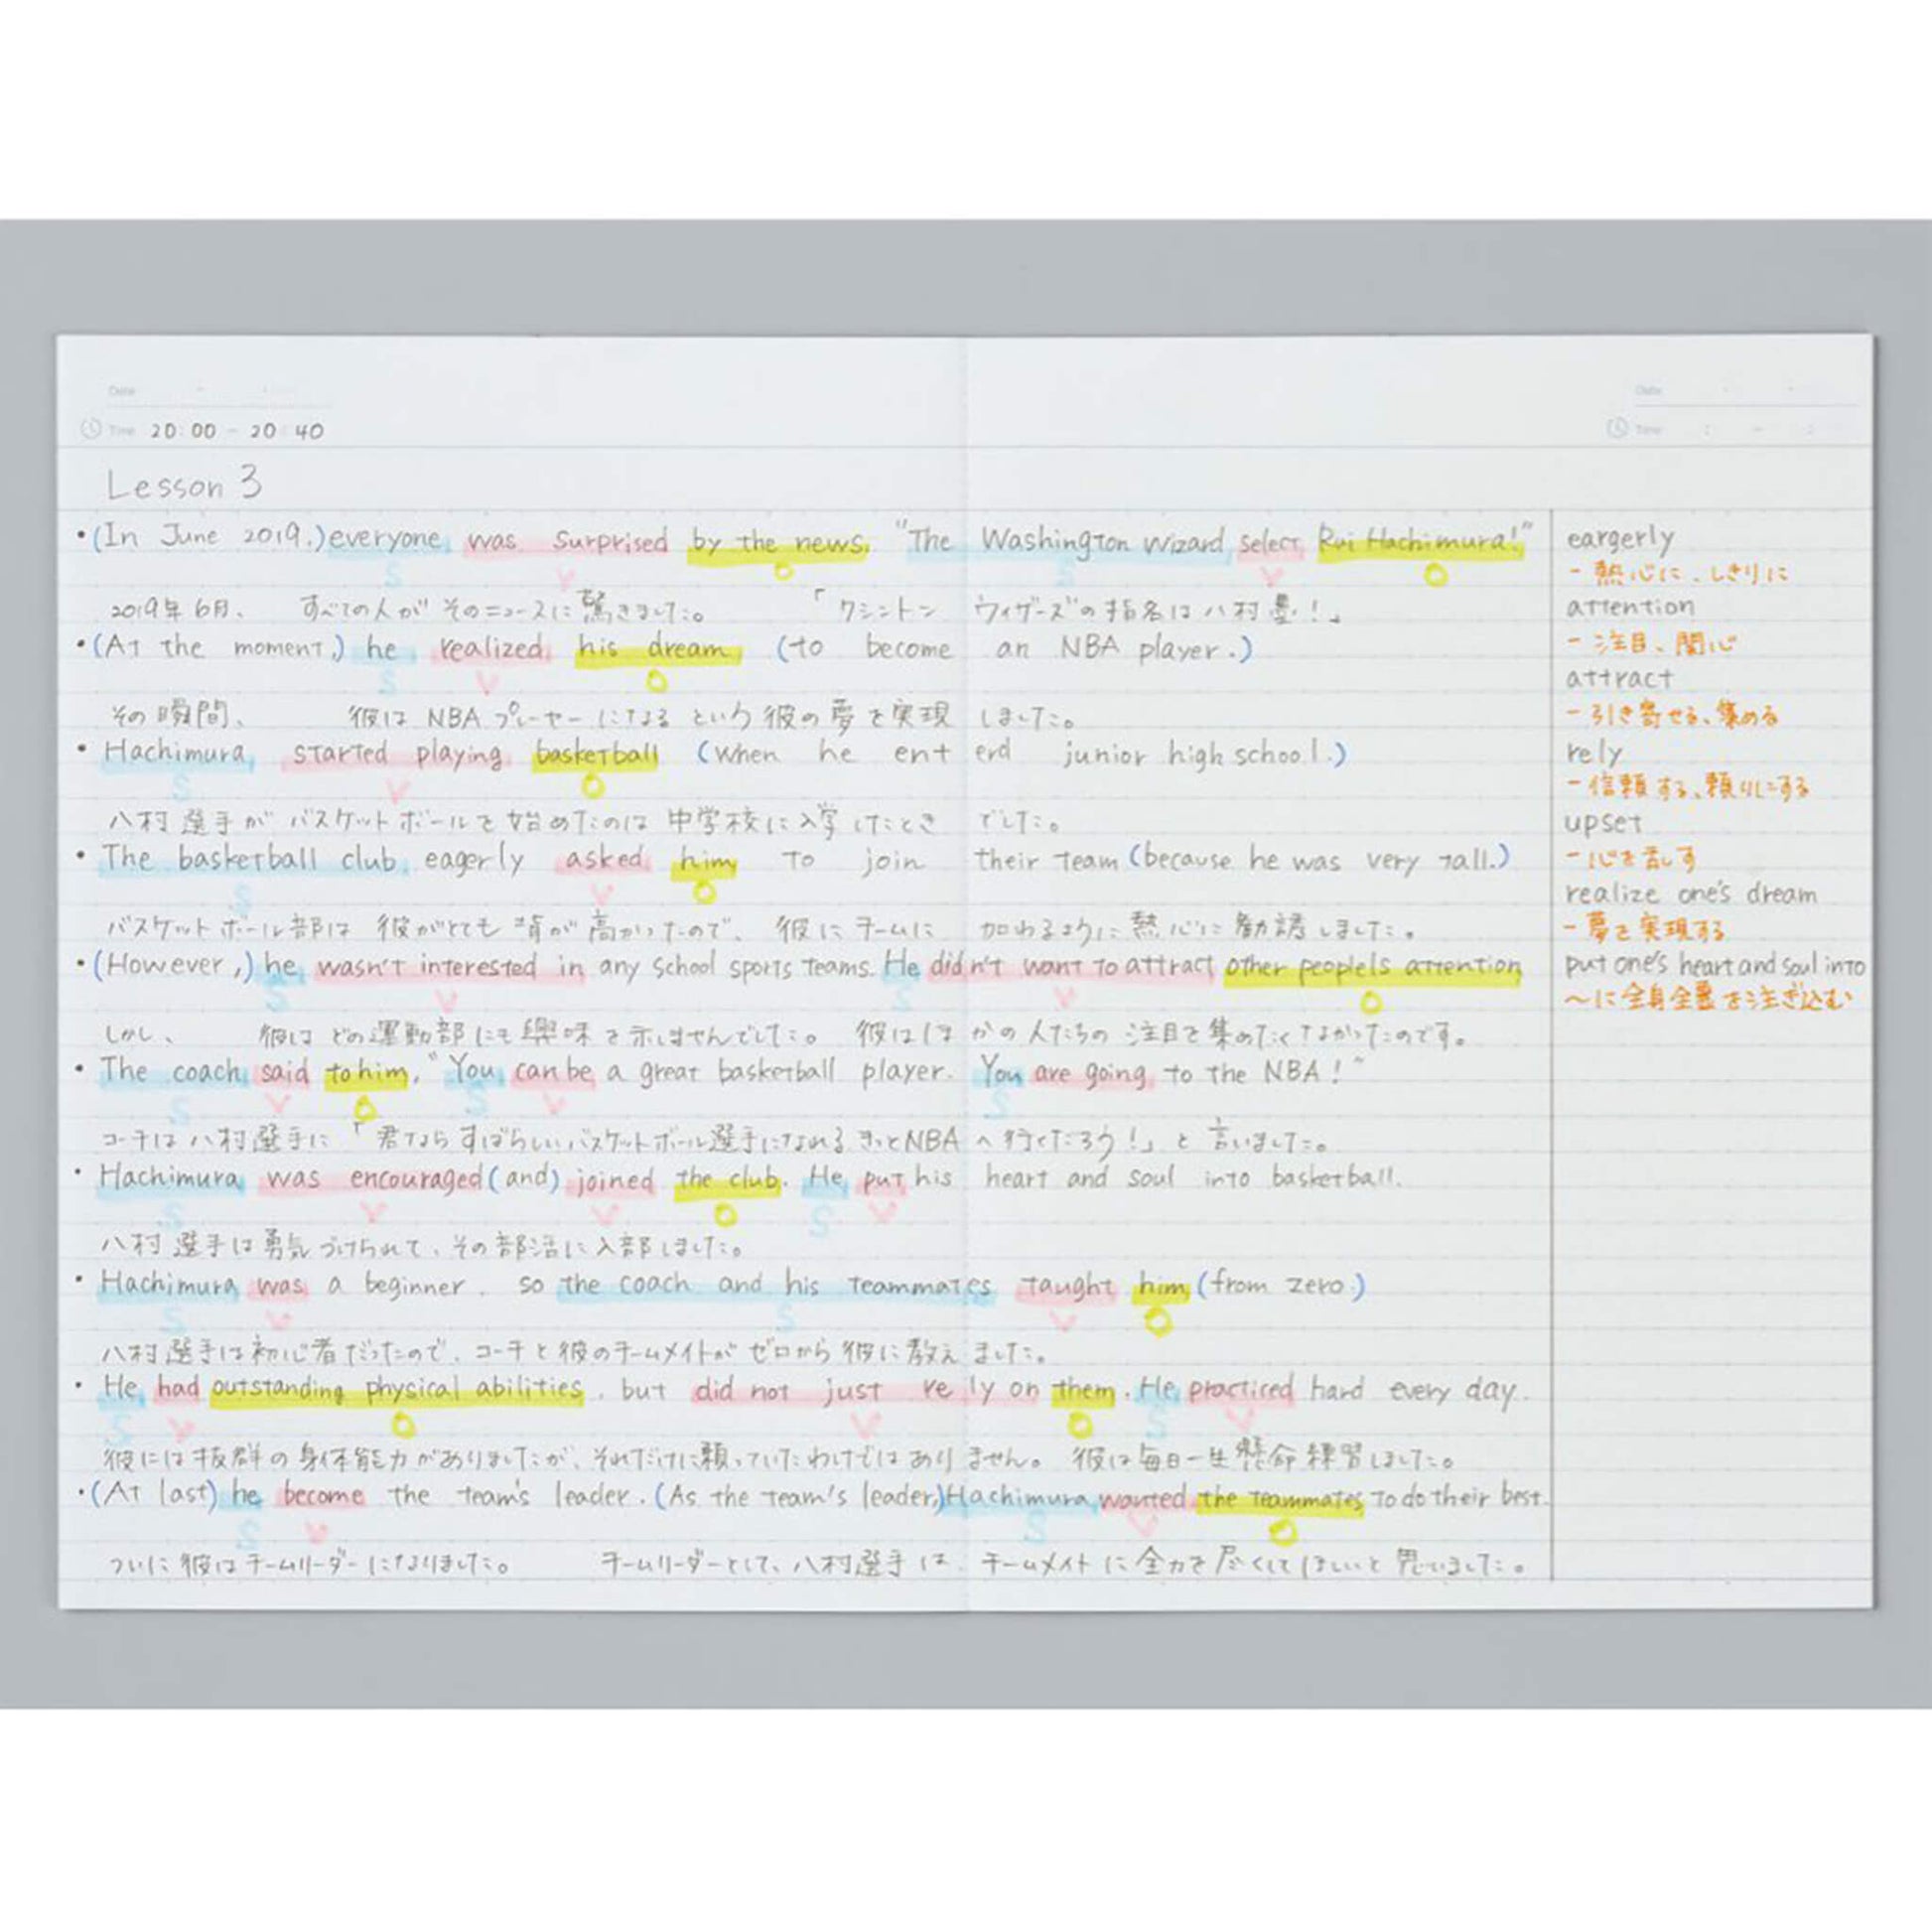 Date
Time 20:00 - 20:40
Date
Time
Lesson 3
•(In June 2019.) everyone was surprised by the news. "The Washington Wizard select Rui Hachimura!"
S V O S V O
2019年6月、 すべての人が そのニュースに驚きました。 「ワシントン ウィザーズの指名は八村塁!」
•(At the moment,) he realized his dream (to become an NBA player.)
S V O
その瞬間、 彼は NBA プレーヤーになる という彼の夢を実現 しました。
• Hachimura started playing basketball (when he enterd junior high school.)
S V O
八村選手が バスケットボールを始めたのは 中学校に入学したとき でした。
• The basketball club eagerly asked him to join their team (because he was very tall.)
S V O
バスケットボール部は 彼がとても背が高かったので、 彼にチームに 加わるように熱心に勧誘しました。
•(However,) he wasn't interested in any school sports teams. He didn't want to attract other people's attention
S V S V O
しかし、 彼はどの運動部にも興味を示しませんでした。 彼はほかの人たちの注目を集めたくなかったのです。
• The coach said to him, "You can be a great basketball player. You are going to the NBA!"
S V O S V S
コーチは八村選手に「君ならすばらしいバスケットボール選手になれるきっとNBAへ行くだろう!」と言いました。
• Hachimura was encouraged (and) joined the club. He put his heart and soul into basketball.
S V V O S V
八村選手は勇気づけられて、その部活に入部しました。
• Hachimura was a beginner. so the coach and his teammates taught him (from zero.)
S V S V O
八村選手は初心者だったので、コーチと彼のチームメイトがゼロから彼に教えました。
• He had outstanding physical abilities, but did not just rely on them. He practiced hard every day.
S V O V O S V
彼には抜群の身体能力がありましたが、それだけに頼っていたわけではありません。 彼は毎日一生懸命練習しました。
•(At last) he become the team's leader. (As the team's leader,) Hachimura wanted the teammates to do their best.
S V S V O
ついに彼はチームリーダーになりました。 チームリーダーとして、八村選手は チームメイトに全力を尽くしてほしいと思いました。
eargerly
- 熱心に、しきりに
attention
- 注目、関心
attract
- 引き寄せる、集める
rely
- 信頼する、頼りにする
upset
- 心を乱す
realize one's dream
- 夢を実現する
put one's heart and soul into
〜に全身全霊を注ぎ込む